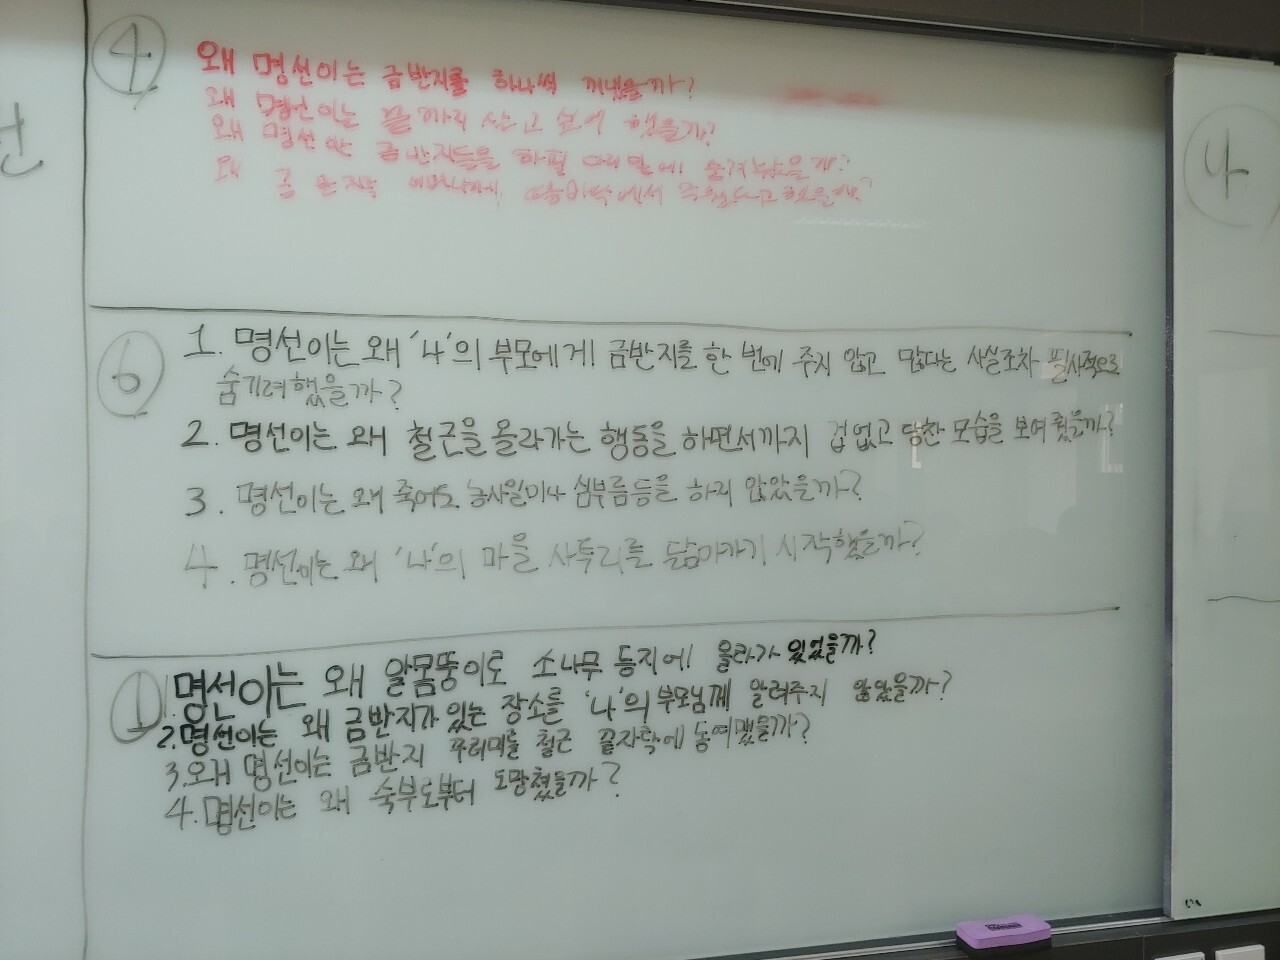 ④
왜 명선이는 금반지를 하나씩 꺼냈을까?
왜 명선이는 끝까지 살고 싶어 했을까?
왜 명선이는 금반지들을 하필 다리 밑에 숨겨놨을까?
왜 금반지 땅바닥에서 주웠다고 했을까?
⑥
1. 명선이는 왜 '나'의 부모에게 금반지를 한 번에 주지 않고 많다는 사실조차 필사적으로
숨기려했을까?
2. 명선이는 왜 철근을 올라가는 행동을 하면서까지 겁없고 당찬 모습을 보여줬을까?
3. 명선이는 왜 죽어도 농사일이나 심부름등을 하지 않았을까?
4. 명선이는 왜 '나'의 마을 사투리를 닮아가기 시작했을까?
①
1. 명선이는 왜 알몸뚱이로 소나무 둥지에 올라가 있었을까?
2. 명선이는 왜 금반지가 있는 장소를 '나'의 부모님께 알려주지 않았을까?
3. 왜 명선이는 금반지 꾸러미를 철근 끝자락에 동여맸을까?
4. 명선이는 왜 숙부로부터 도망쳤을까?
4